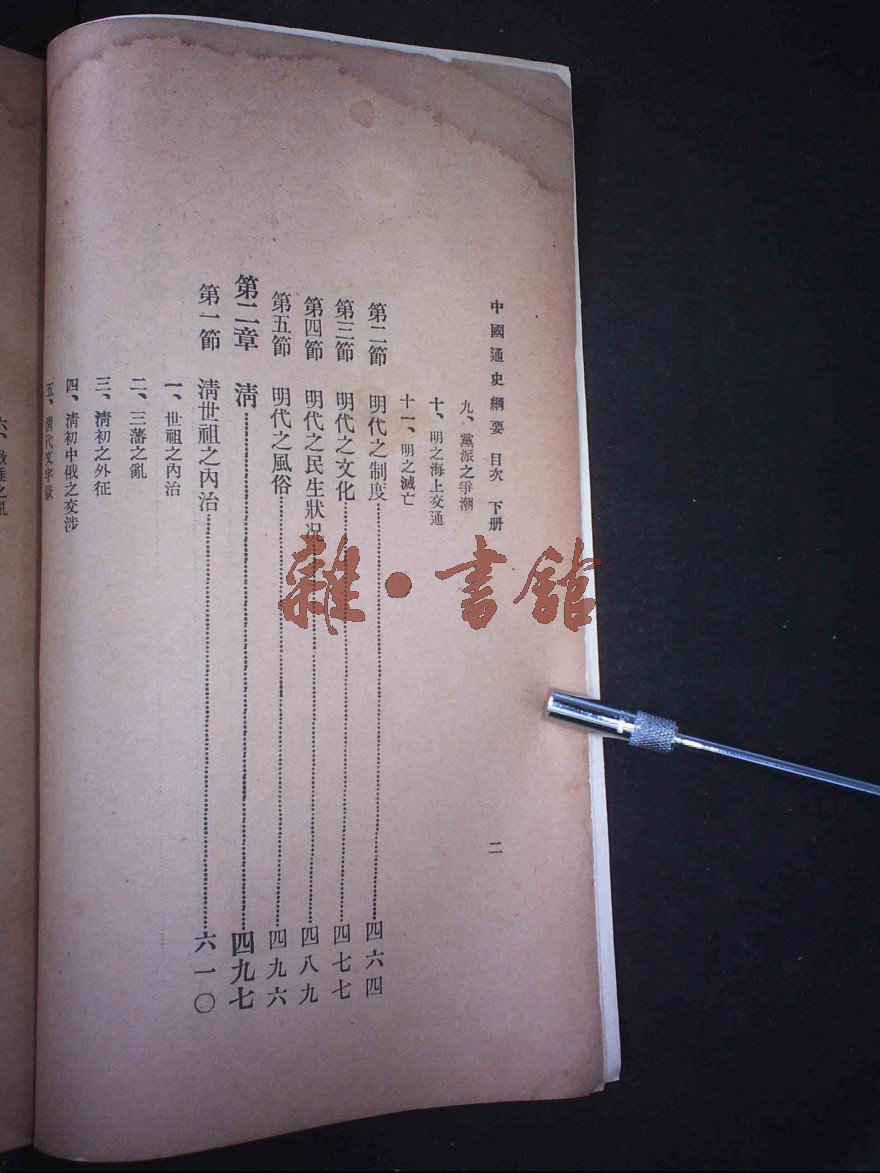 中國通史綱要 目次 下册 二
九、黨派之爭潮
十、明之海上交通
十一、明之滅亡
第二節 明代之制度 四六四
第三節 明代之文化 四七七
第四節 明代之民生狀況 四八九
第五節 明代之風俗 四九六
第二章 淸 四九七
第一節 淸世祖之內治 六一〇
一、世祖之內治
二、三藩之亂
三、淸初之外征
四、淸初中俄之交涉
五、淸代文字獄
雜·書館